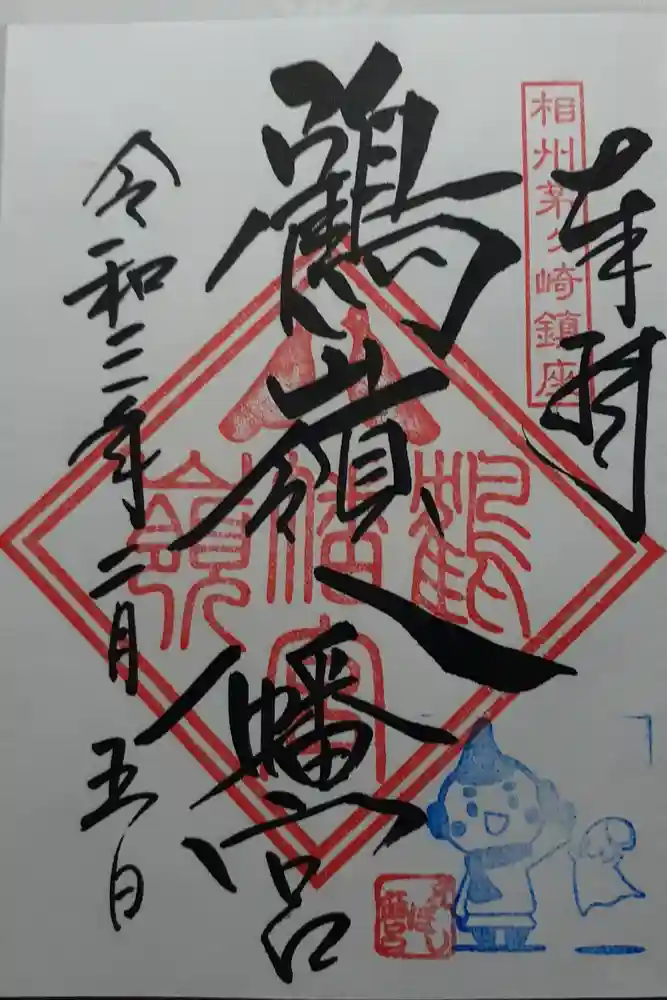 奉拝
相州茅ヶ崎鎮座
鶴嶺八幡宮
令和三年二月五日
鶴
八幡宮
嶺
えぼし
麻呂